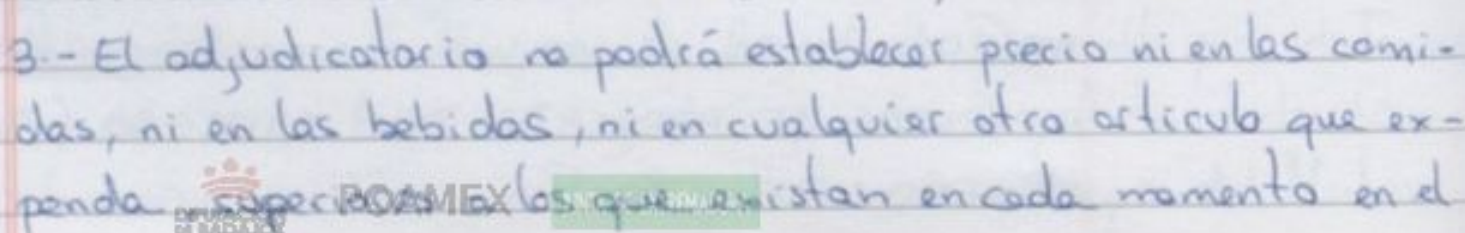 3.- El adjudicatario no podrá establecer precio ni en las comi-
das, ni en las bebidas, ni en cualquier otro articulo que ex-
penda superiores a los que existan en cada momento en el